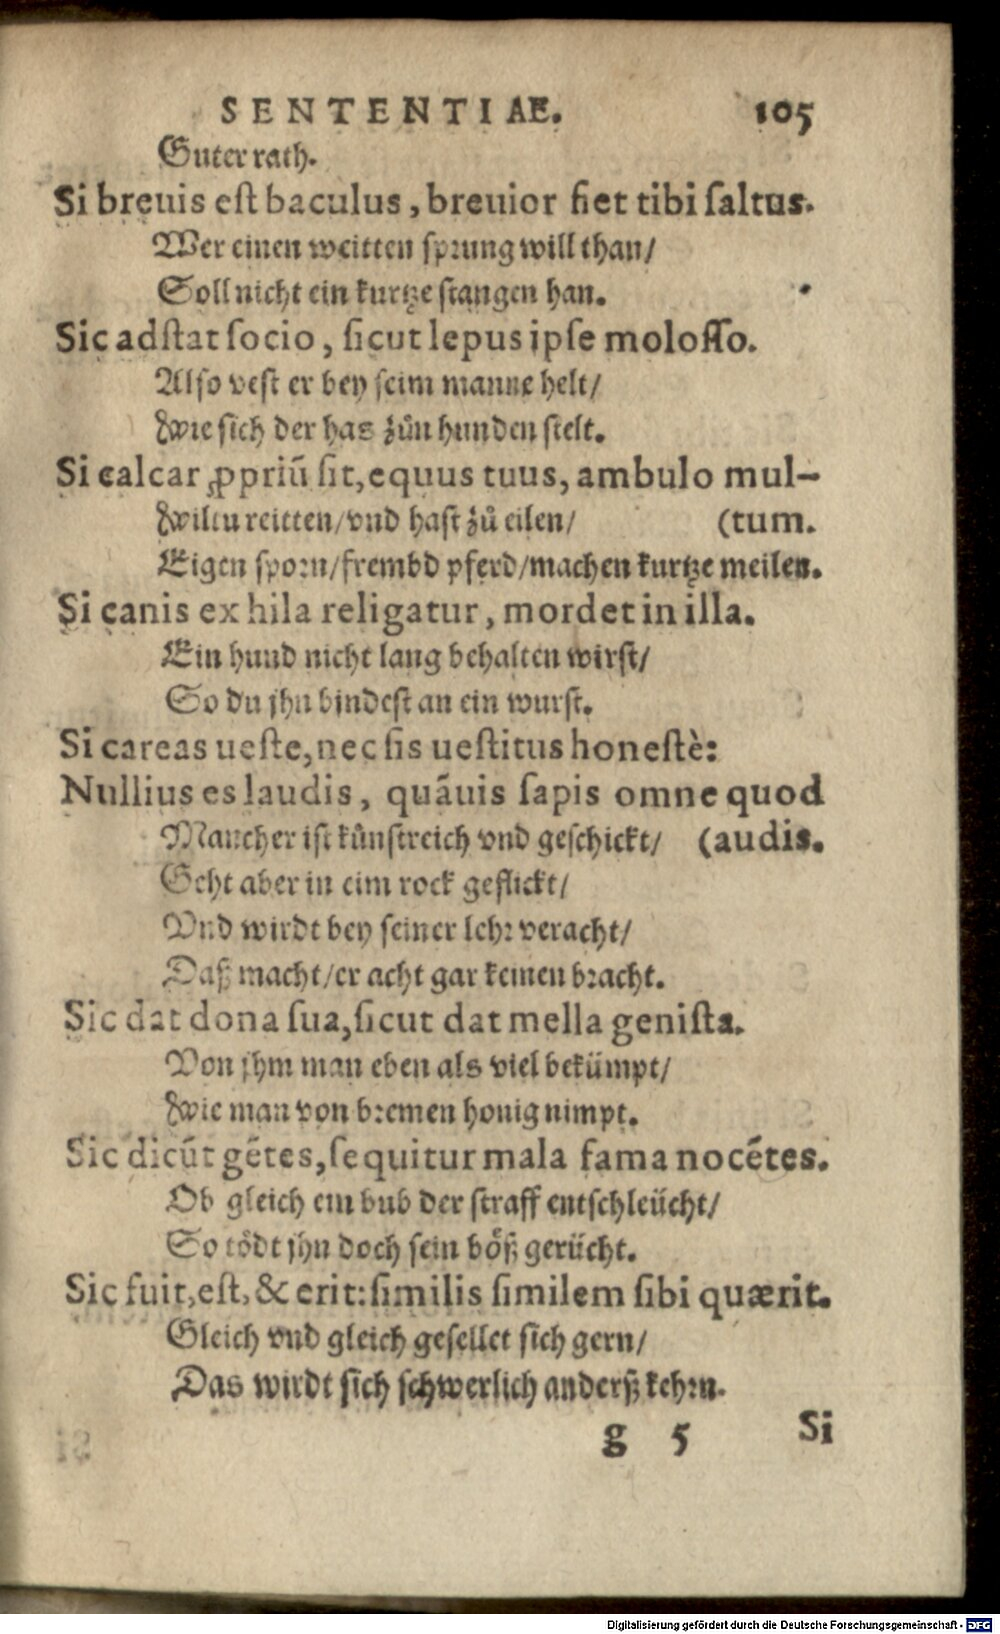 SENTENTIAE. 105
Guter rath.
Si breuis est baculus, breuior fiet tibi saltus.
Wer einen weitten sprung will than/
Soll nicht ein kurtze stangen han.
Sic adstat socio, sicut lepus ipse molosso.
Also vest er bey seim manne helt/
Wie sich der has zůn hunden stelt.
Si calcar ꝓpriũ sit, equus tuus, ambulo mul-
Wiltu reitten/vnd hast zů eilen/ (tum.
Eigen sporn/frembd pferd/machen kurtze meilen.
Si canis ex hila religatur, mordet in illa.
Ein hund nicht lang behalten wirst/
So du jhn bindest an ein wurst.
Si careas ueste, nec sis uestitus honestè:
Nullius es laudis, quãuis sapis omne quod
Mancher ist kůnstreich vnd geschickt/ (audis.
Geht aber in eim rock geflickt/
Vnd wirdt bey seiner lehr veracht/
Daß macht/er acht gar keinen bracht.
Sic dat dona sua, sicut dat mella genista.
Von jhm man eben als viel bekümpt/
Wie man von bremen honig nimpt.
Sic dicũt gẽtes, sequitur mala fama nocẽtes.
Ob gleich ein bub der straff entschleücht/
So tödt jhn doch sein böß gerücht.
Sic fuit, est, & erit: similis similem sibi quærit.
Gleich vnd gleich gesellet sich gern/
Das wirdt sich schwerlich anderß kehrn.
g 5 Si
Digitalisierung gefördert durch die Deutsche Forschungsgemeinschaft - DFG